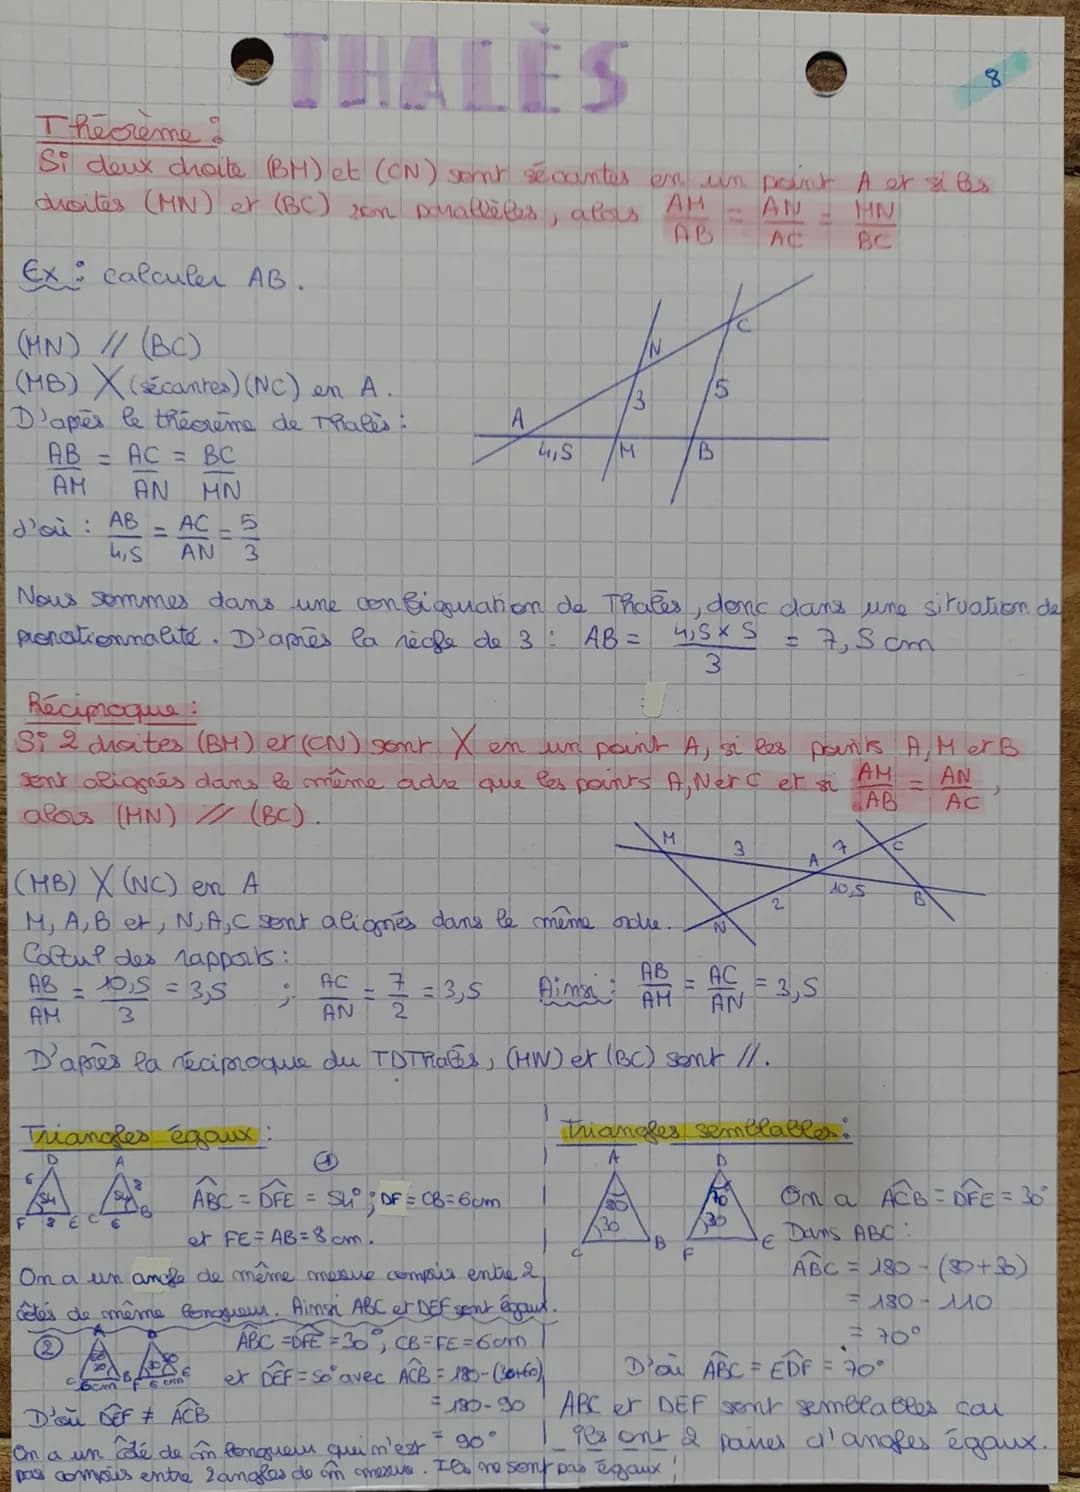 THALÈS
8
Théorème :
Si deux droite (BM) et (CN) sont sécantes en un point A et si les
droites (MN) et (BC) son parallèles, alors AM/AB = AN/AC = MN/BC
Ex : calculer AB.
(MN) // (BC)
(MB) X (sécantes) (NC) en A.
D'après le théorème de Thalès :
AB/AM = AC/AN = BC/MN
d'où : AB/4,5 = AC/AN = 5/3
A
4,5
M
B
N
3
C
5
Nous sommes dans une configuration de Thalès, donc dans une situation de
porotionnalité. D'après la règle de 3 : AB = 4,5 x 5 / 3 = 7,5 cm
Réciproque :
Si 2 droites (BM) et (CN) sont X en un point A, si les points A, M et B
sont alignés dans le même odre que les points A, N et C et si AM/AB = AN/AC,
alors (MN) // (BC).
M
3
A
7
C
2
10,5
B
N
(MB) X (NC) en A
M, A, B et, N, A, C sont alignés dans le même odre.
Calcul des rapports :
AB/AM = 10,5/3 = 3,5 ; AC/AN = 7/2 = 3,5 Ainsi : AB/AM = AC/AN = 3,5
D'après la réciproque du TDThalès, (MN) et (BC) sont //.
Triangles égaux :
D
6
54
F
8
E
A
54
8
C
6
B
①
ABC = DFE = 54° ; DF = CB = 6cm
et FE = AB = 8cm.
On a un angle de même mesure compris entre 2
côtés de même longueur. Ainsi ABC et DEF sont égaux.
②
A
C
6cm
B
D
F
6cm
E
ABC = DFE = 30°, CB = FE = 6cm
et DEF = 50° avec ACB = 180-(30+60)
= 180 - 90
= 90°
D'où DEF ≠ ACB
On a un côté de m̂ longueur qui n'est
pas compris entre 2 angles de m̂ mesure. Ils ne sont pas égaux !
Triangles semblables :
A
80
30
C
B
D
70
30
F
E
On a ACB = DFE = 30°
Dans ABC :
ABC = 180 - (80+30)
= 180 - 110
= 70°
D'où ABC = EDF = 70°
ABC et DEF sont semblables car
ils ont 2 paires d'angles égaux.